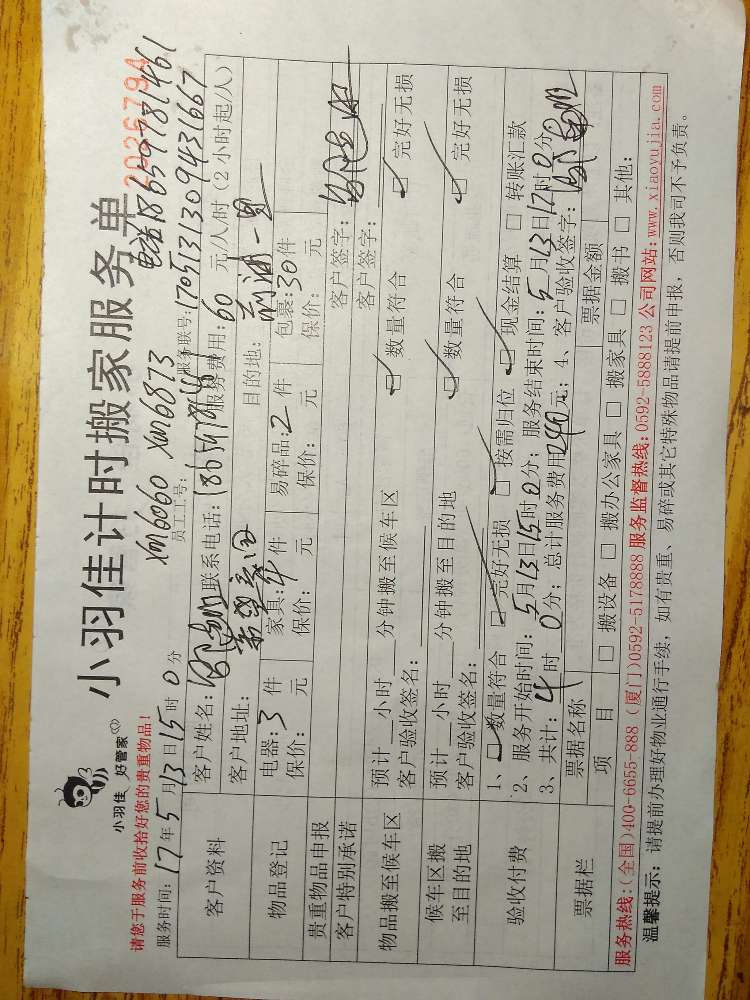 小羽佳计时搬家服务单
2036794
小羽佳 好管家
请您于服务前收拾好您的贵重物品!
xm6060 xm6873
电话18659781461
服务时间:17年5月13日15时0分
员工工号:
服务联号:1705131309431667
客户资料
客户姓名:
联系电话:
服务费用:60元/人/时(2小时起/人)
客户地址:
目的地:
物品登记
电器:3件
家具:4件
易碎品:2件
包裹:30件
保价: 元
保价: 元
保价: 元
保价: 元
贵重物品申报
客户签字:
客户特别承诺
客户签字:
物品搬至候车区
预计__小时__分钟搬至候车区
☑数量符合 ☑完好无损
客户验收签名:
候车区搬
至目的地
预计__小时__分钟搬至目的地
☑数量符合 ☑完好无损
客户验收签名:
验收付费
1、☑数量符合 ☑完好无损 ☑按需归位 ☑现金结算 □转账汇款
2、服务开始时间:5月13日15时0分;服务结束时间:5月13日17时0分
3、共计:4时0分;总计服务费用240元;4、客户验收签字:
票据栏
票据名称
票据金额
项目
□搬设备 □搬办公家具 □搬家具 □搬书 □其他:
服务热线:(全国)400-6655-888 (厦门)0592-5178888 服务监督热线:0592-5888123 公司网站:www.xiaoyujia.com
温馨提示:请提前办理好物业通行手续,如有贵重、易碎或其它特殊物品请提前申报,否则我司不予负责。